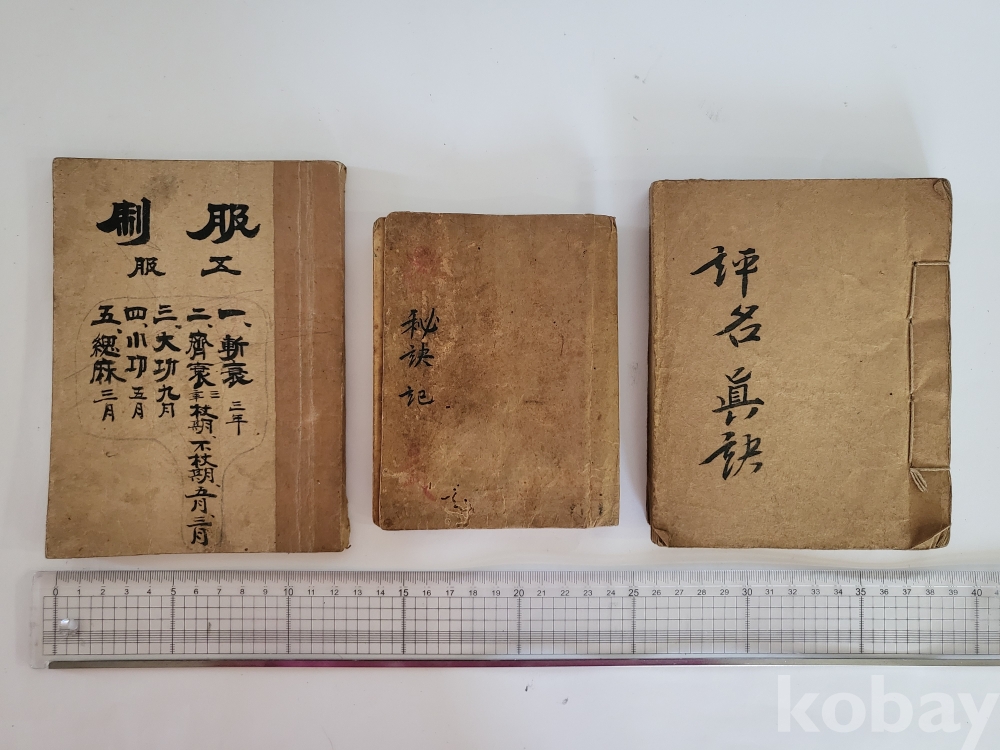 服制
五服
一、斬衰 三年
二、齊衰 三年 杖期、不杖期、五月、三月
三、大功 九月
四、小功 五月
五、緦麻 三月
秘訣記
評名眞訣
0 1 2 3 4 5 6 7 8 9 10 11 12 13 14 15 16 17 18 19 20 21 22 23 24 25 26 27 28 29 30 31 32 33 34 35 36 37 38 39 40 4
kobay